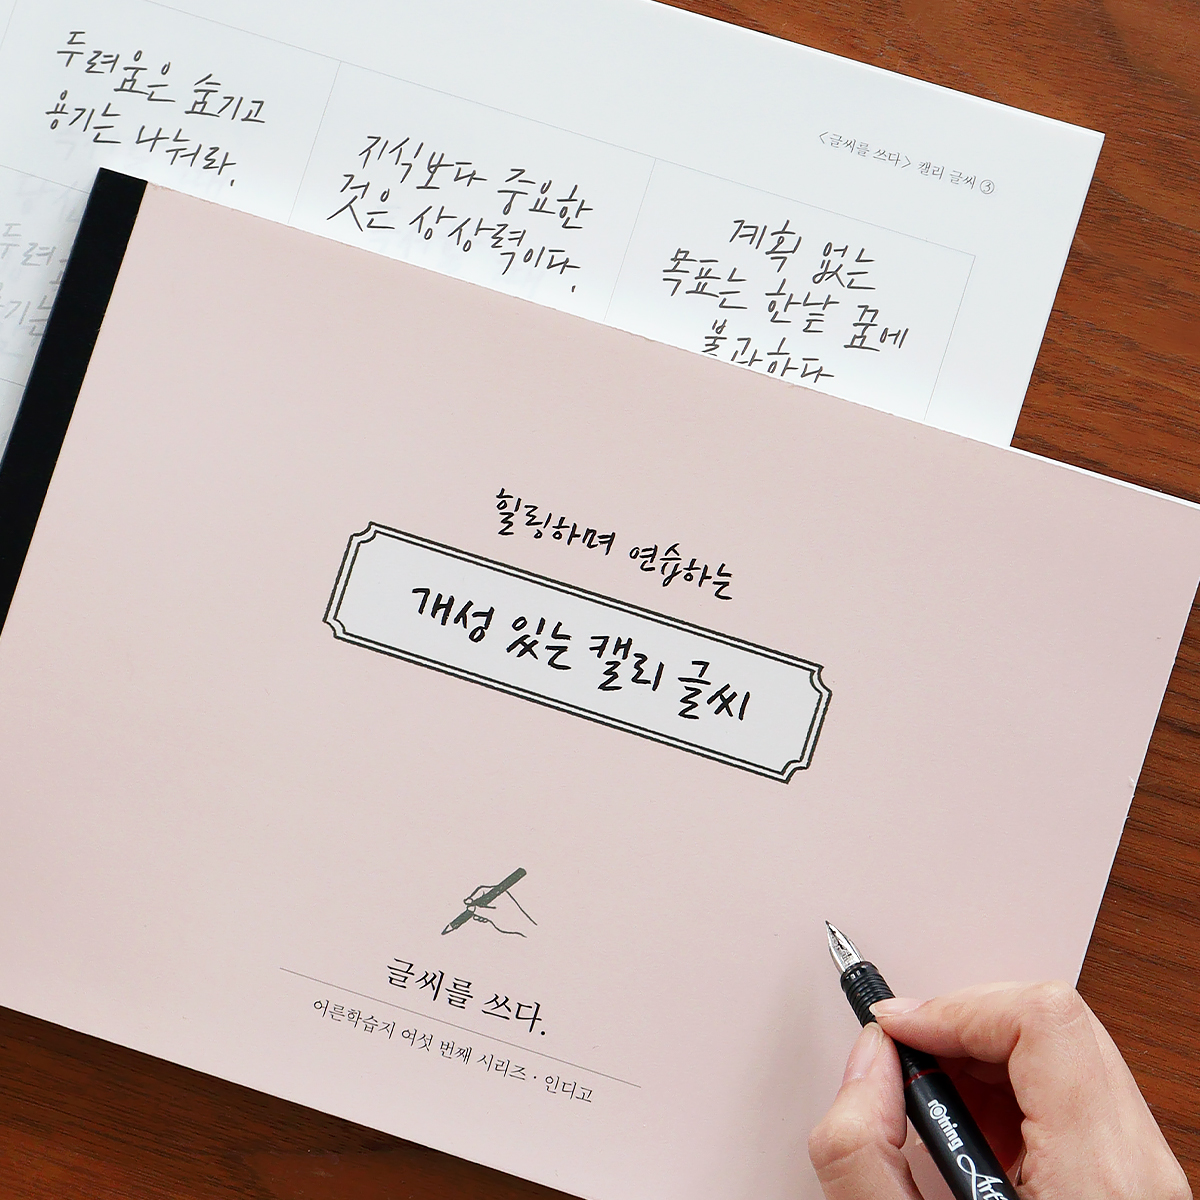 두려움은 숨기고
용기는 나눠라.
지식보다 중요한
것은 상상력이다.
<글씨를 쓰다> 캘리 글씨 ③
계획 없는
목표는 한낱 꿈에
불과하다
두려
기는
힐링하며 연습하는
개성 있는 캘리 글씨
글씨를 쓰다.
어른학습지 여섯 번째 시리즈 · 인디고
rOtring
Art